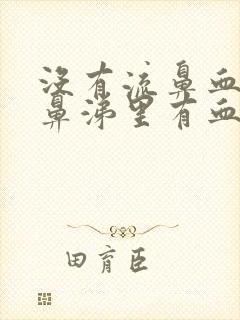 没有流鼻血
鼻涕里有血
田育臣